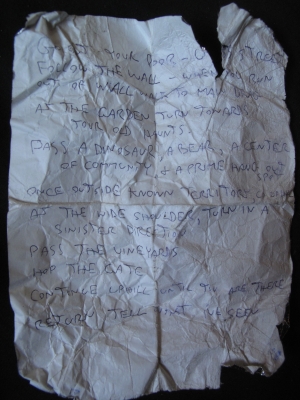 YOUR DOOR - STREET
FOLLOW THE WALL - WHEN YOU RUN
OUT OF WALL, WALK TO MAY
AT THE GARDEN TURN TOWARDS
YOUR OLD HAUNTS.
PASS A DINOSAUR, A BEAR, A CENTER
OF COMMUNITY, & A PRIME HANG OUT
SPOT
ONCE OUTSIDE KNOWN TERRITORY
AT THE WIDE SHOULDER, TURN IN A
SINISTER DIRECTION
PASS THE VINEYARDS
HOP THE GATE
CONTINUE UPHILL UNTIL YOU ARE THERE
RETURN, TELL WHAT